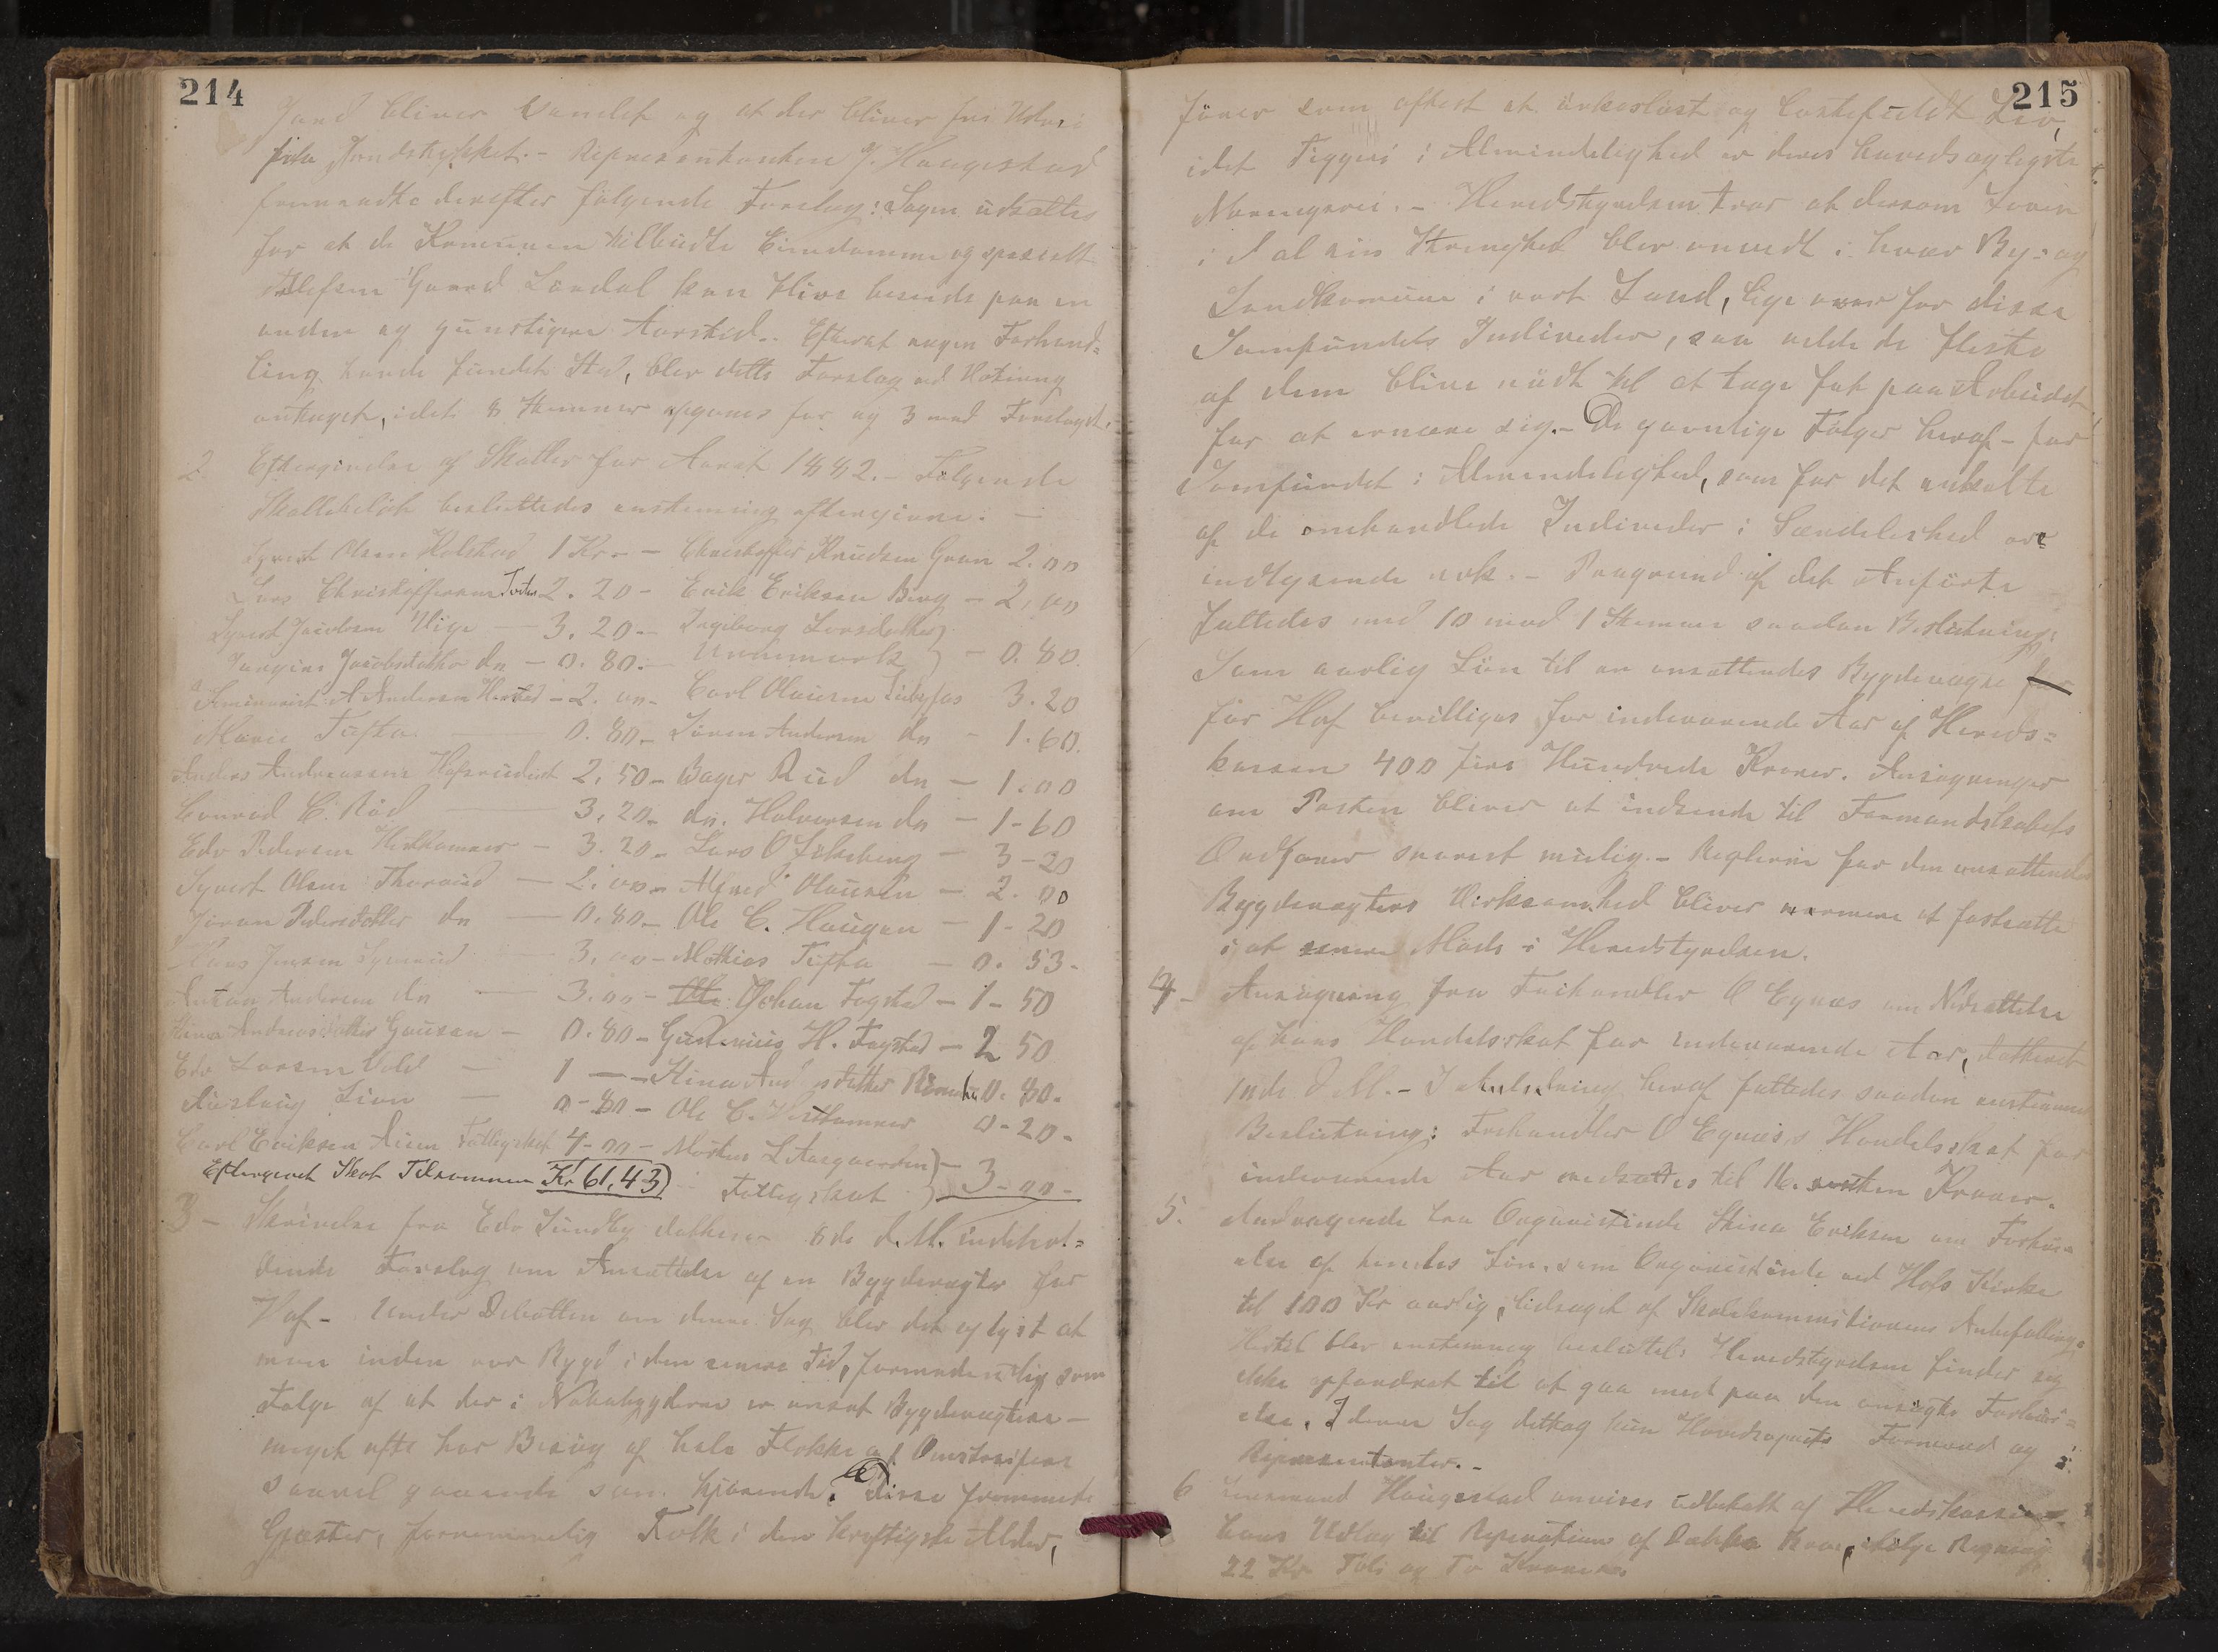 214
Jord bliver vandet og at der bliver fri Udvei
fra Jordstykket. - Repræsentanten J. Haugestad
fremsadte derefter følgende Forslag: Sagen udsættes
for at de Kommunen tilbudte Eiendomme og specielt
Gaard Lændal kan blive beseede paa en
anden og gunstigere Aarstid.. Efterat nogen Forhand=
ling havde fundet Sted, blev dette Forslag ved Votering
antaget, idet 8 Stemmer afgaves for og 3 mod Forslaget.
2. Eftergivelse af Skatter for Aaret 1882. - Følgende
Skattebeløb besluttedes enstemmig eftergivne. -
Syvert Olsen Holstad 1 Kr. - - Christoffer Knudsen Gran 2.00
Lars Christoffersen 2.20 - Erik Eriksen Berg - 2,00
Syvert Jacobsen - 3.20 - Ingeborg Larsdatter
Jacobsdatter do - 0.80. - - 0.80.
A Andersen - 2.00 - Carl Olausen 3.20
Marie Tufta - 0.80 - Søren Andersen do - 1.60.
Anders Andreassen 2.50 - Bager Ruud do - 1.00
Conrad C. Rød - 3.20 - do. Halvorsen do - 1-60
Edv Pedersen - 3.20 - Lars O - 3-20
Syvert Olsen - 2.00 - Alfred Olausen - 2.00
Jøran Pedersdatter do - 0.80 - Ole C. Haugen - 1-20
Hans Jensen - 3,00 - Mathias Tufta - 0.53-
Anton Andersen do - 3.00 - Johan Fagstad - 1-50
Andreasdatter - 0.80 - H. Fagstad - 2 50
Edv Larsen Vold - 1 - - Stina 0.80.
Lien - 0-80 - Ole C. 0-20-
Carl Eriksen Fattigskat 4-00 - L - 3-00-
Eftergivet Skat Tilsammen Kr 61,43) - Fattigskat
3 - Skrivelse fra Edv Sundby datteret 8de d.M. indehol=
dende Forslag om Ansættelse af en Bygdevægter for
Hof - Under Debatten om denne Sag blev det oplyst at
man inden vor Bygd i den senere Tid, formodentlig som
Følge af at der i Nabobygderne er ansat Bygdevægtere -
meget ofte har Besøg af hele Flokke af Omstreifere
saavel gaaende som kjørende. Disse fremmede
Gjæster, fornemmelig Folk i den kraftigste Alder,
215
fører som oftest et ørkesløst og lastefuldt Liv,
idet Tiggeri i Almindelighed er deres hovedsageligste
Næringsvei. - Heredstyrelsen tror at dersom Loven
i al sin Strenghed blev anvendt i hver By= og
Landkommune i vort Land, lige over for disse
Samfundets Individer, saa vilde de fleste
af dem blive nødt til at tage fat paa Arbeidet
for at ernære sig. - De gavnlige Følger heraf - for
Samfundet i Almindelighed, som for det enkelte
af de omhandlede Individer i Særdeleshed ere
indlysende nok. - Paagrund af det Anførte
fattedes med 10 mod 1 Stemme saadan Beslutning:
Som aarlig Løn til en ansættendes Bygdevægter
for Hof bevilliges for indeværende Aar af Hereds=
kassen 400 fire Hundrede Kroner. Ansøgninger
om Posten bliver at indsende til Formandskabets
Ordfører snarest mulig. - Reglerne for den ansættendes
Bygdevægters Virksomhed bliver nærmere at fastsætte
i et senere Møde i Heredstyrelsen.
4 - Ansøgning fra Frihandler O Eqnæs om Nedsættelse
af hans Handelsskat for indeværende Aar, datteret
d M. - I Anledning heraf fattedes saadan enstemmig
Beslutning: Frihandler O Eqnæs's Handelsskat for
indeværende Aar nedsættes til 16. sexten Kroner.
5. Andragende fra Organistinde Stina Eriksen om Forhøi=
else af hendes Løn som Organistinde ved Hofs Kirke
til 100 Kr aarlig, ledsaget af Skolekommissionens Anbefaling.
Hertil blev enstemmig besluttet: Heredstyrelsen finder sig
ikke opfordret til at gaa med paa den ansøgte Forhøi=
else. I denne Sag deltog kun Hovedsognets Formænd og
Repræsentanter. -
6 Haugestad anvises udbetalt af Heredskassen
hans Udlæg til Reperation af Bro, ifølge Regning
22 Kr Tyve og To Kroner.